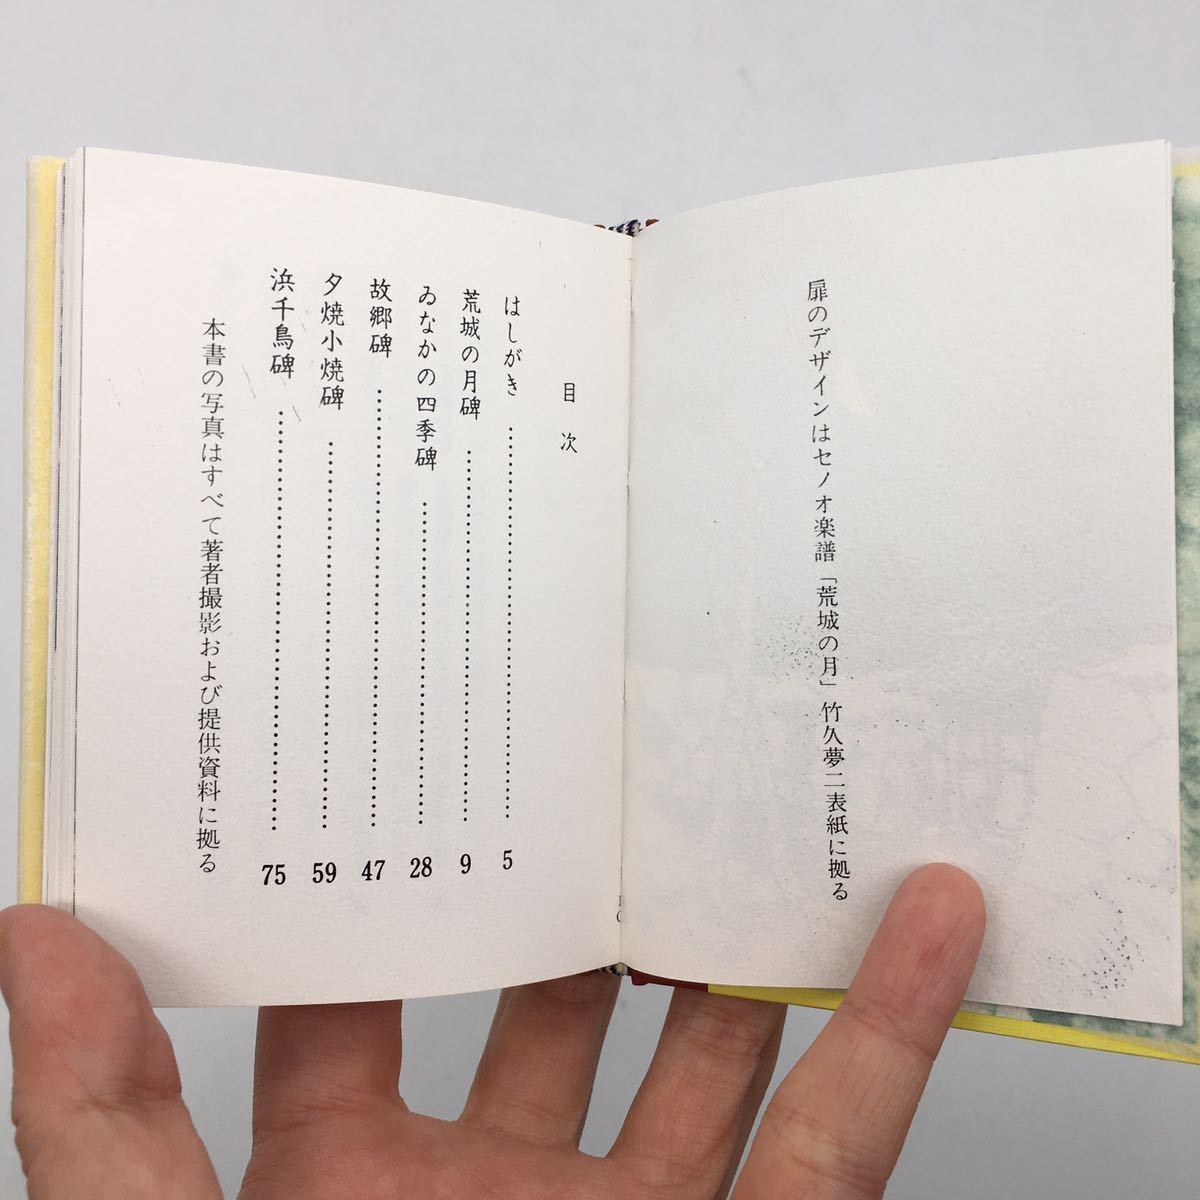 扉のデザインはセノオ楽譜「荒城の月」竹久夢二表紙に拠る
目次
はしがき……………………………5
荒城の月碑……………………………9
ゐなかの四季碑……………………………28
故郷碑……………………………47
夕焼小焼碑……………………………59
浜千鳥碑……………………………75
本書の写真はすべて著者撮影および提供資料に拠る